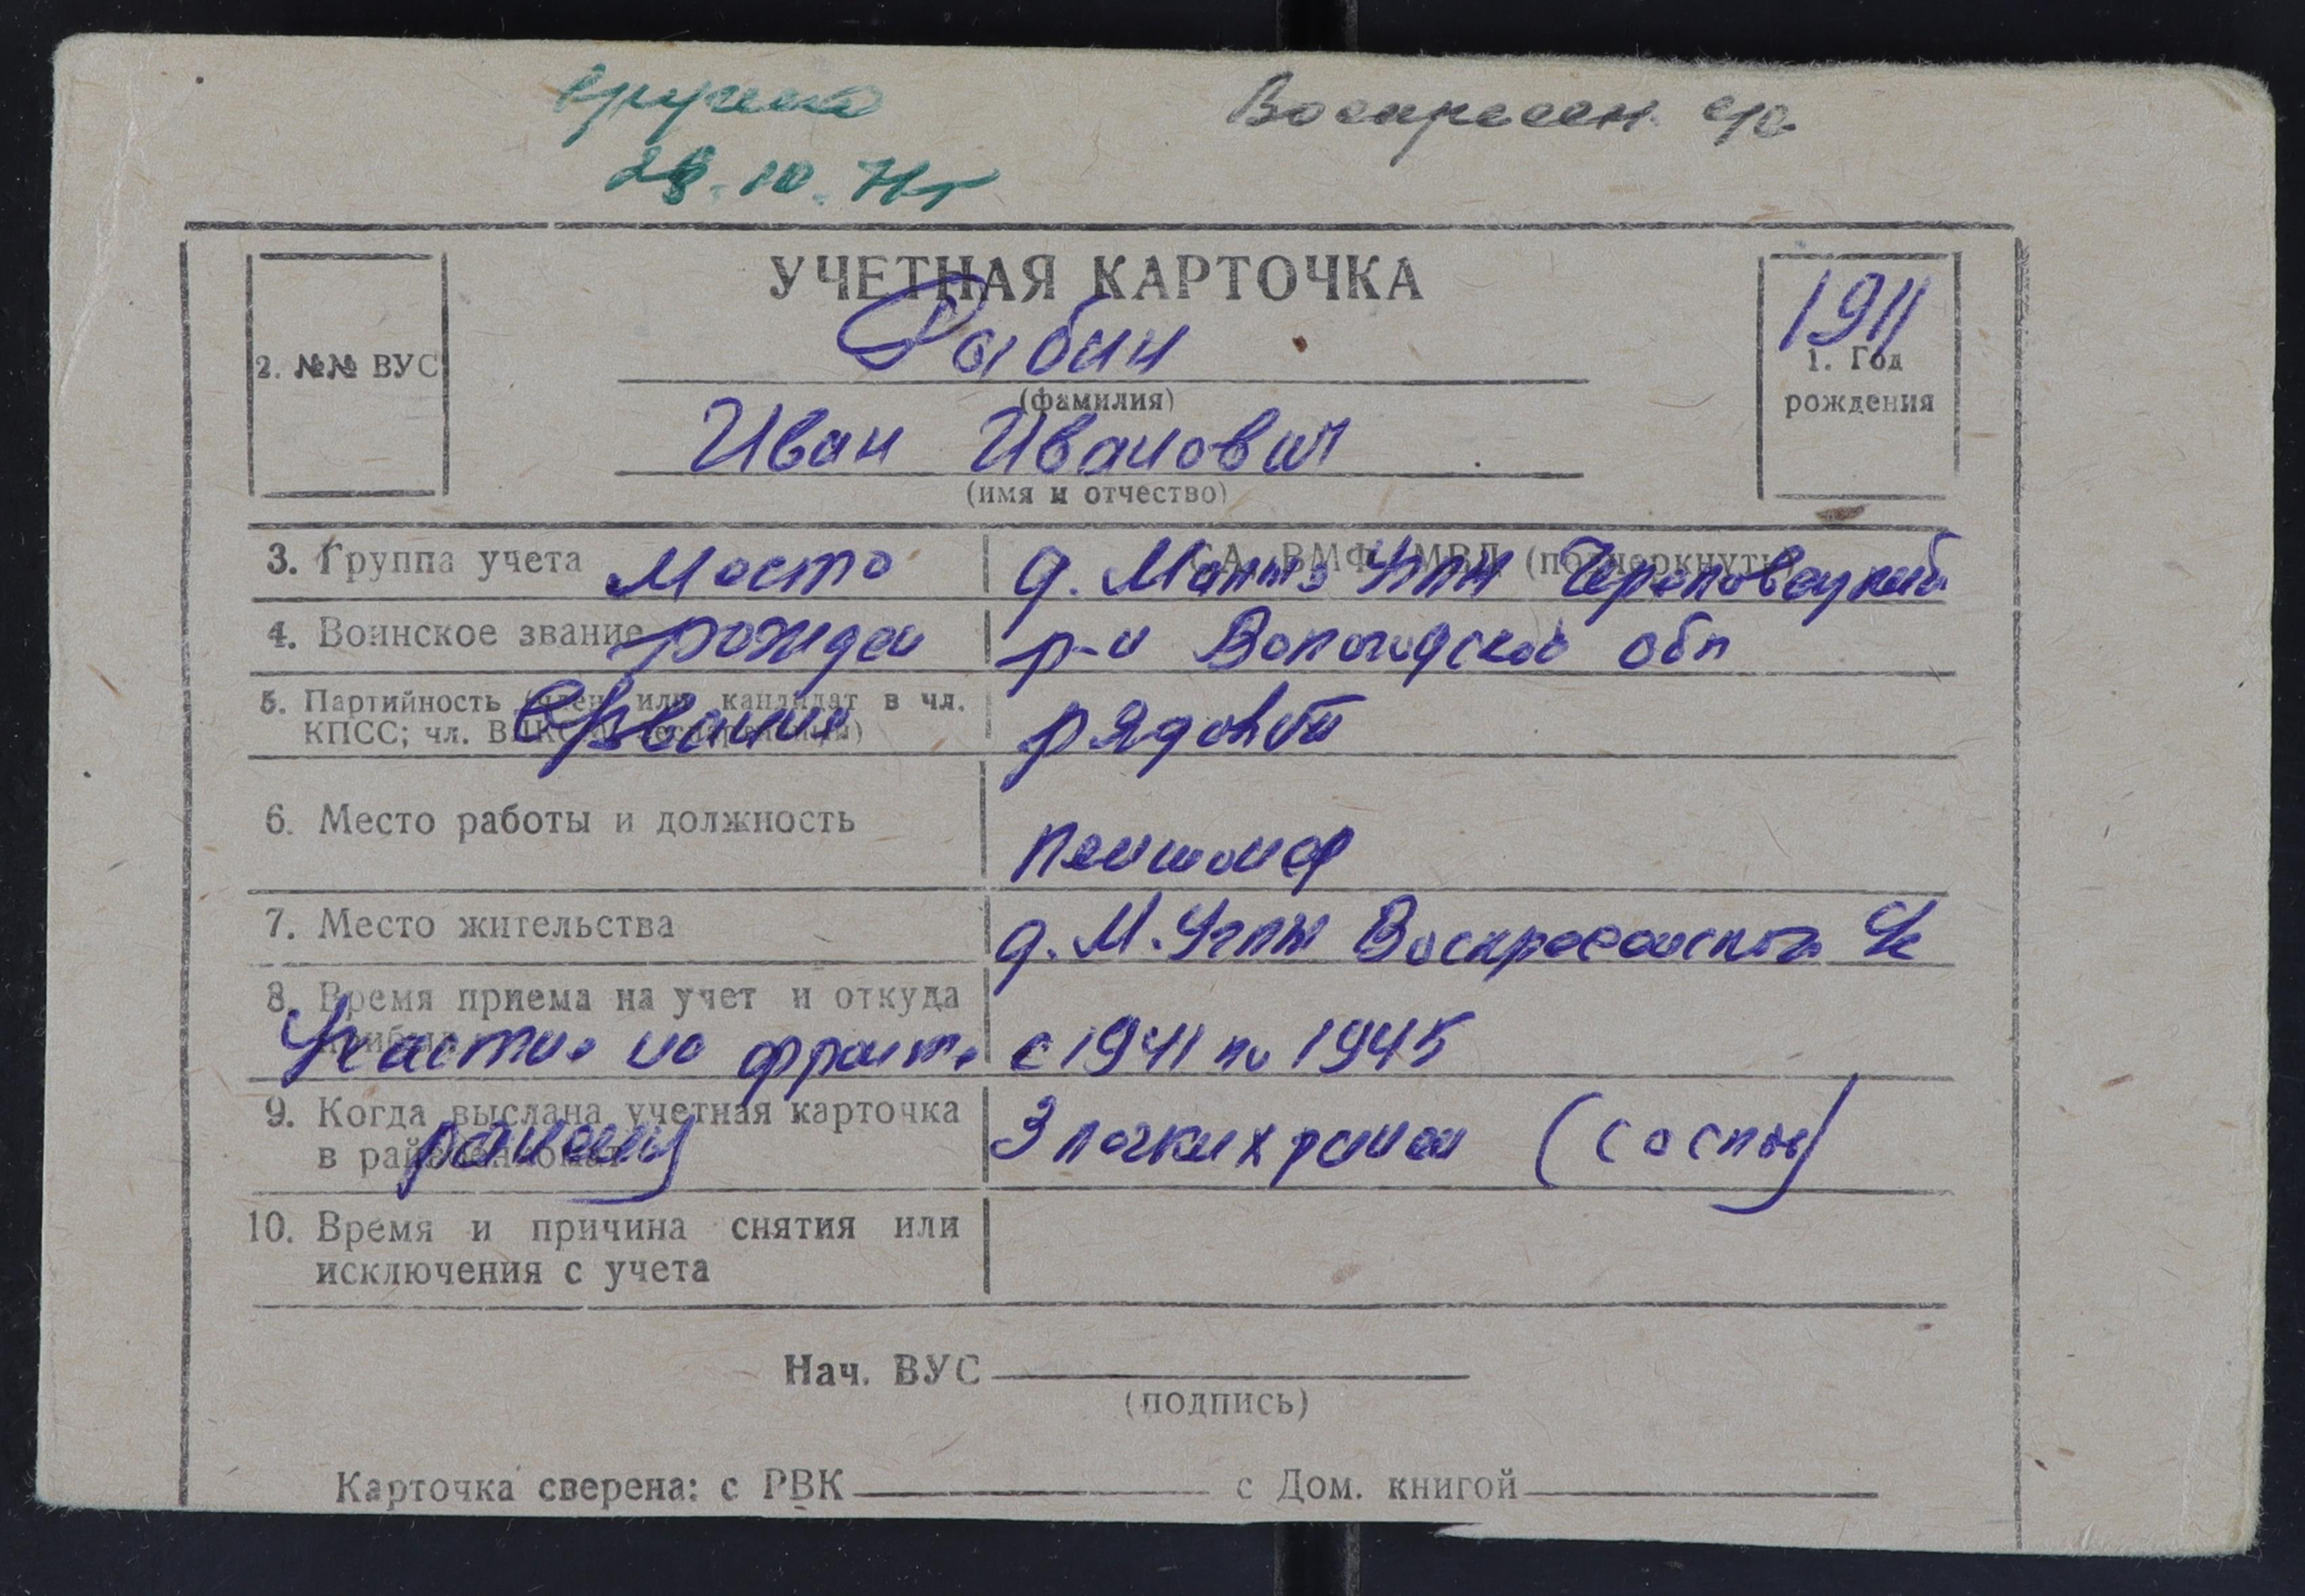 вручена
Воскресен с/с
28.10.71г
УЧЕТНАЯ КАРТОЧКА
2. №№ ВУС
Рабин
(фамилия)
1911
1. Год
рождения
Иван Иванович
(имя и отчество)
3. Группа учета Место д. Череповецкий
4. Воинское звание рожден р-н Вологодской обл
5. Партийность или кандидат в чл.
КПСС; чл. звание рядовой
6. Место работы и должность
пенсионер
7. Место жительства д. М. Углы Воскресенского
8. Время приема на учет и откуда
Участие на фронте с 1941 по 1945
9. Когда выслана учетная карточка
в ранения 3 легких ранен (со слов)
10. Время и причина снятия или
исключения с учета
Нач. ВУС
(подпись)
Карточка сверена: с РВК с Дом. книгой